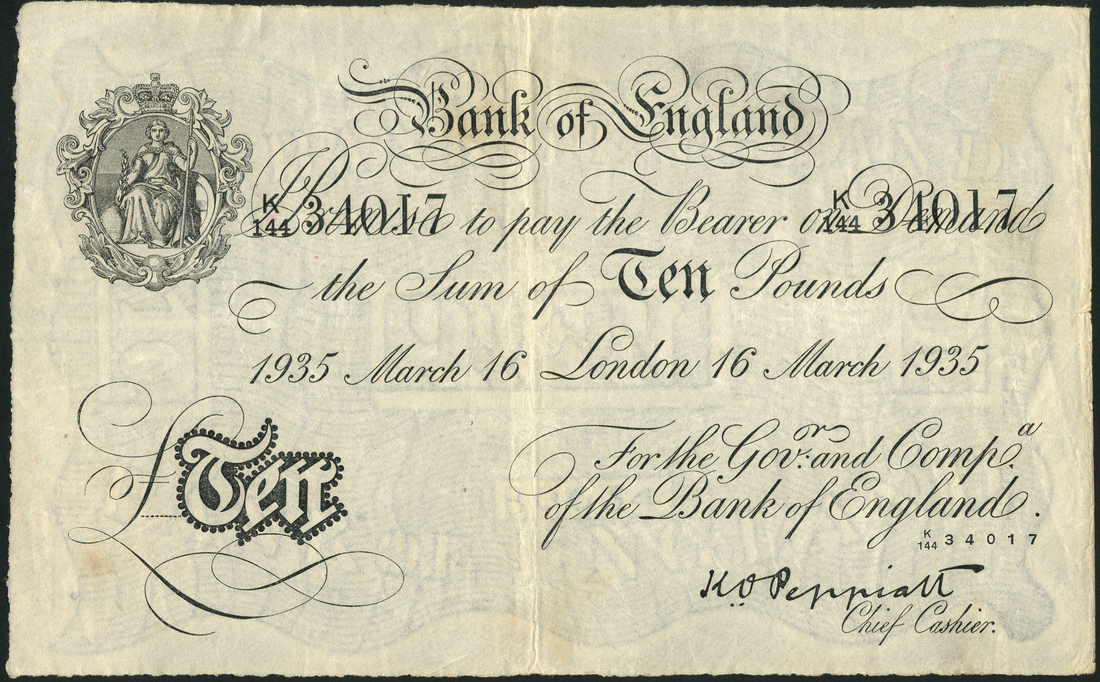 Bank of England
K/144 34017 K/144 34017
I Promise to pay the Bearer on Demand
the Sum of Ten Pounds
1935 March 16 London 16 March 1935
£Ten
For the Govr. and Compa.
of the Bank of England.
K/144 34017
K.O. Peppiatt
Chief Cashier.